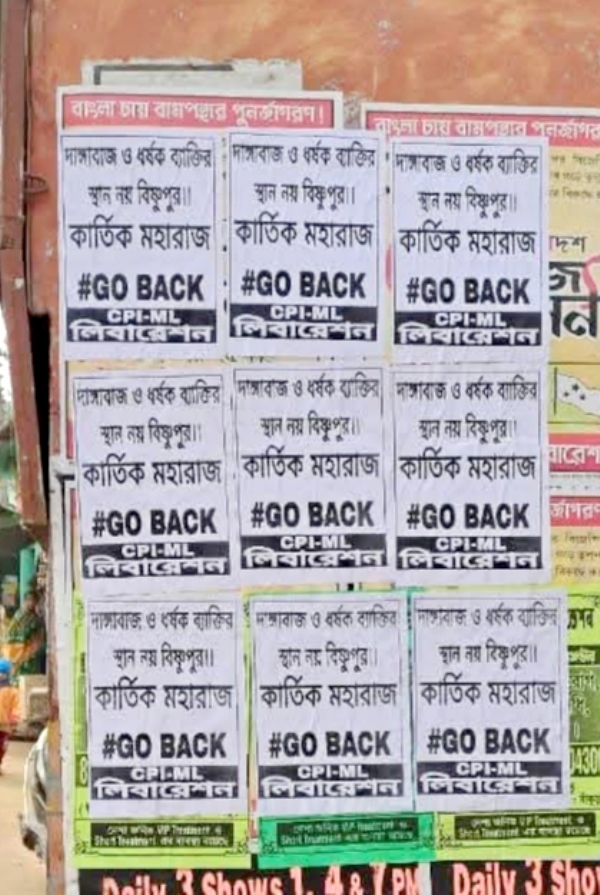 বাংলা চায় বামপন্থার পুনর্জাগরণ!
বাংলা চায় বামপন্থার পুনর্জাগর
দাঙ্গাবাজ ও ধর্ষক ব্যাক্তির
স্থান নয় বিষ্ণুপুর।।
কার্তিক মহারাজ
#GO BACK
CPI-ML
লিবারেশন
দাঙ্গাবাজ ও ধর্ষক ব্যাক্তির
স্থান নয় বিষ্ণুপুর।।
কার্তিক মহারাজ
#GO BACK
CPI-ML
লিবারেশন
দাঙ্গাবাজ ও ধর্ষক ব্যাক্তির
স্থান নয় বিষ্ণুপুর।।
কার্তিক মহারাজ
#GO BACK
CPI-ML
লিবারেশন
দাঙ্গাবাজ ও ধর্ষক ব্যাক্তির
স্থান নয় বিষ্ণুপুর।।
কার্তিক মহারাজ
#GO BACK
CPI-ML
লিবারেশন
দাঙ্গাবাজ ও ধর্ষক ব্যাক্তির
স্থান নয় বিষ্ণুপুর।।
কার্তিক মহারাজ
#GO BACK
CPI-ML
লিবারেশন
দাঙ্গাবাজ ও ধর্ষক ব্যাক্তির
স্থান নয় বিষ্ণুপুর।।
কার্তিক মহারাজ
#GO BACK
CPI-ML
লিবারেশন
দাঙ্গাবাজ ও ধর্ষক ব্যাক্তির
স্থান নয় বিষ্ণুপুর।।
কার্তিক মহারাজ
#GO BACK
CPI-ML
লিবারেশন
দাঙ্গাবাজ ও ধর্ষক ব্যাক্তির
স্থান নয় বিষ্ণুপুর।।
কার্তিক মহারাজ
#GO BACK
CPI-ML
লিবারেশন
দাঙ্গাবাজ ও ধর্ষক ব্যাক্তির
স্থান নয় বিষ্ণুপুর।।
কার্তিক মহারাজ
#GO BACK
CPI-ML
লিবারেশন
Daily 3 Shows 1, 4 & 7 PM
Daily 3 Sho